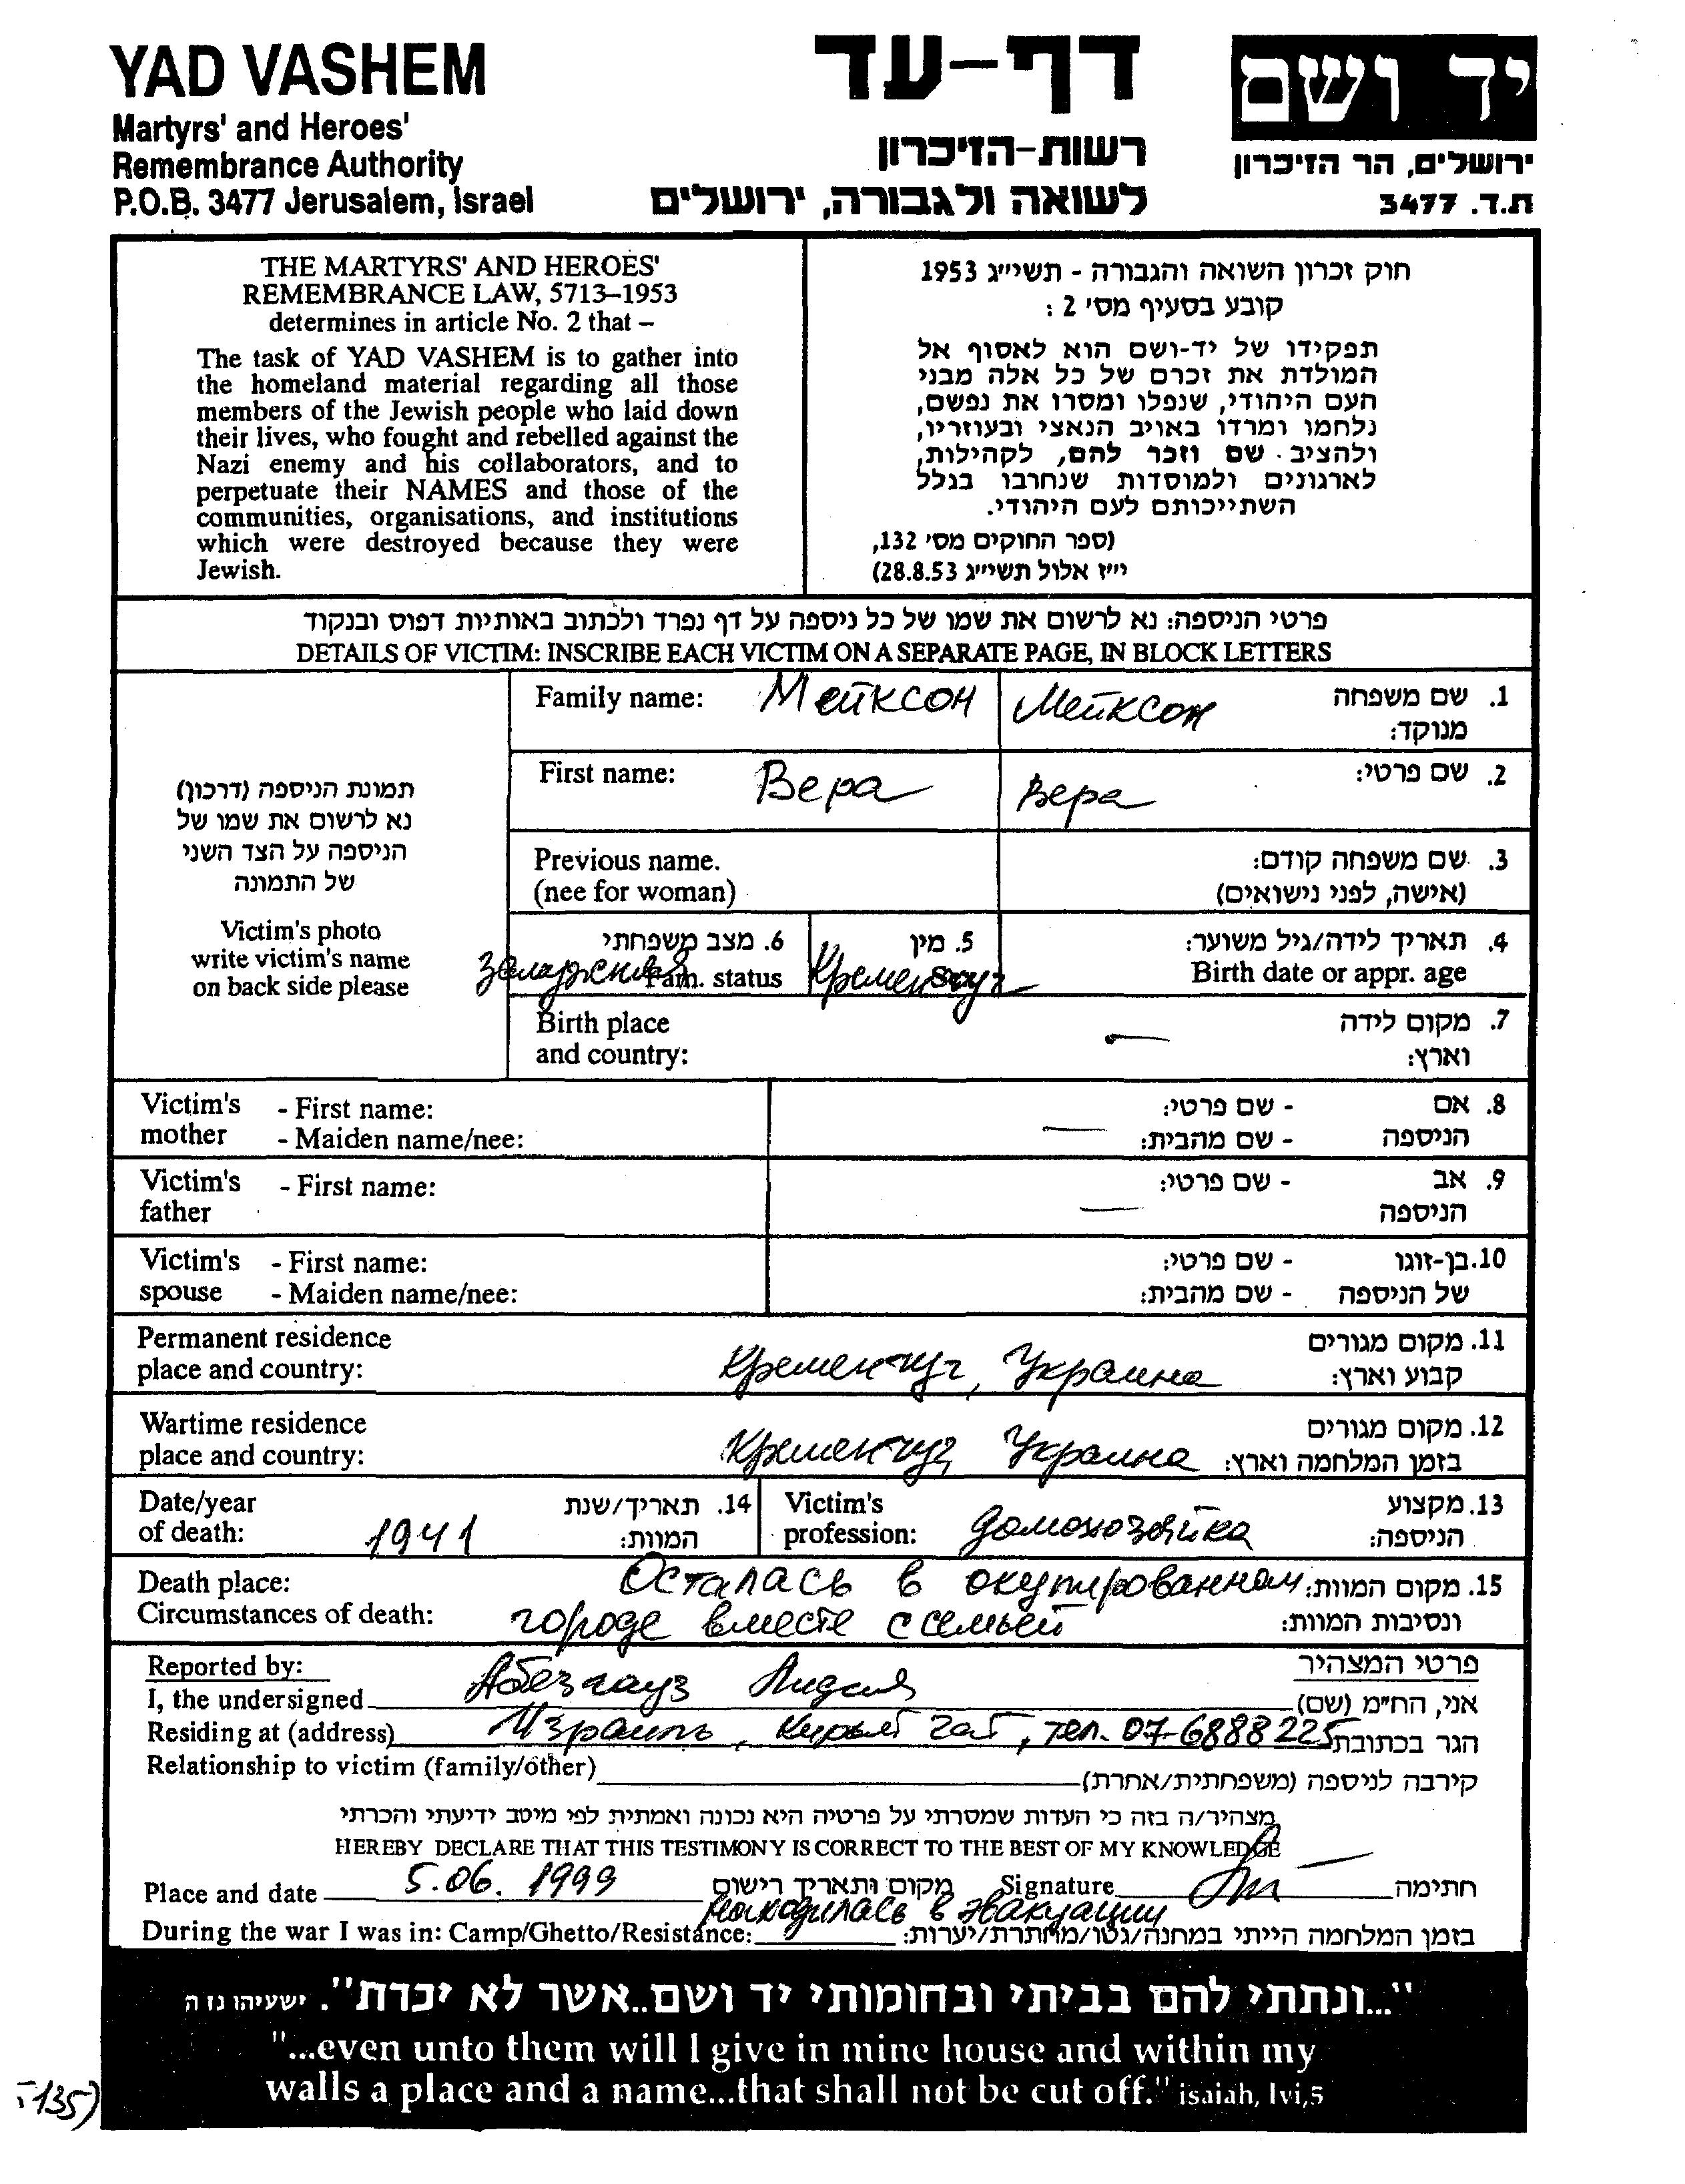 YAD VASHEM
Martyrs' and Heroes'
Remembrance Authority
P.O.B. 3477 Jerusalem, Israel
דף-עד
רשות-הזיכרון
לשואה ולגבורה, ירושלים
יד ושם
ירושלים, הר הזיכרון
ת.ד. 3477
THE MARTYRS' AND HEROES'
REMEMBRANCE LAW, 5713–1953
determines in article No. 2 that –
The task of YAD VASHEM is to gather into
the homeland material regarding all those
members of the Jewish people who laid down
their lives, who fought and rebelled against the
Nazi enemy and his collaborators, and to
perpetuate their NAMES and those of the
communities, organisations, and institutions
which were destroyed because they were
Jewish.
חוק זכרון השואה והגבורה - תשי״ג 1953
קובע בסעיף מס' 2 :
תפקידו של יד-ושם הוא לאסוף אל
המולדת את זכרם של כל אלה מבני
העם היהודי, שנפלו ומסרו את נפשם,
נלחמו ומרדו באויב הנאצי ובעוזריו,
ולהציב שם וזכר להם, לקהילות,
לארגונים ולמוסדות שנחרבו בגלל
השתייכותם לעם היהודי.
(ספר החוקים מס' 132,
י״ז אלול תשי״ג 28.8.53)
פרטי הניספה: נא לרשום את שמו של כל ניספה על דף נפרד ולכתוב באותיות דפוס ובנקוד
DETAILS OF VICTIM: INSCRIBE EACH VICTIM ON A SEPARATE PAGE, IN BLOCK LETTERS
תמונת הניספה (דרכון)
נא לרשום את שמו של
הניספה על הצד השני
של התמונה
Victim's photo
write victim's name
on back side please
Family name: Мейксон Мейксон 1. שם משפחה
מנוקד:
First name: Вера Вера 2. שם פרטי:
Previous name. 3. שם משפחה קודם:
(nee for woman) (אישה, לפני נישואים)
6. מצב משפחתי 5. מין 4. תאריך לידה/גיל משוער:
Fam. status Кременчуг Sex Birth date or appr. age
Birth place 7. מקום לידה
and country: — וארץ:
Victim's - First name: - שם פרטי: 8. אם
mother - Maiden name/nee: — - שם מהבית: הניספה
Victim's - First name: - שם פרטי: 9. אב
father — הניספה
Victim's - First name: - שם פרטי: 10. בן-זוגו
spouse - Maiden name/nee: - שם מהבית: של הניספה
Permanent residence 11. מקום מגורים
place and country: Кременчуг, Украина קבוע וארץ:
Wartime residence 12. מקום מגורים
place and country: Кременчуг, Украина בזמן המלחמה וארץ:
Date/year 14. תאריך/שנת Victim's 13. מקצוע
of death: 1941 המוות: profession: домохозяйка הניספה:
Death place: Осталась в окупированном 15. מקום המוות:
Circumstances of death: городе вместе с семьей ונסיבות המוות:
Reported by: פרטי המצהיר
I, the undersigned Абезгауз Лидия אני, הח״מ (שם)
Residing at (address) Израиль, Кирьят Гат, тел. 07-6888225 הגר בכתובת
Relationship to victim (family/other) קירבה לניספה (משפחתית/אחרת)
מצהיר/ה בזה כי העדות שמסרתי על פרטיה היא נכונה ואמתית לפי מיטב ידיעתי והכרתי
HEREBY DECLARE THAT THIS TESTIMONY IS CORRECT TO THE BEST OF MY KNOWLEDGE
Place and date 5.06. 1999 מקום ותאריך רישום Signature חתימה
находилась в эвакуации
During the war I was in: Camp/Ghetto/Resistance: בזמן המלחמה הייתי במחנה/גטו/מחתרת/יערות:
"...ונתתי להם בביתי ובחומותי יד ושם..אשר לא יכרת". ישעיהו נו ה
"...even unto them will I give in mine house and within my
walls a place and a name...that shall not be cut off." isaiah, lvi,5